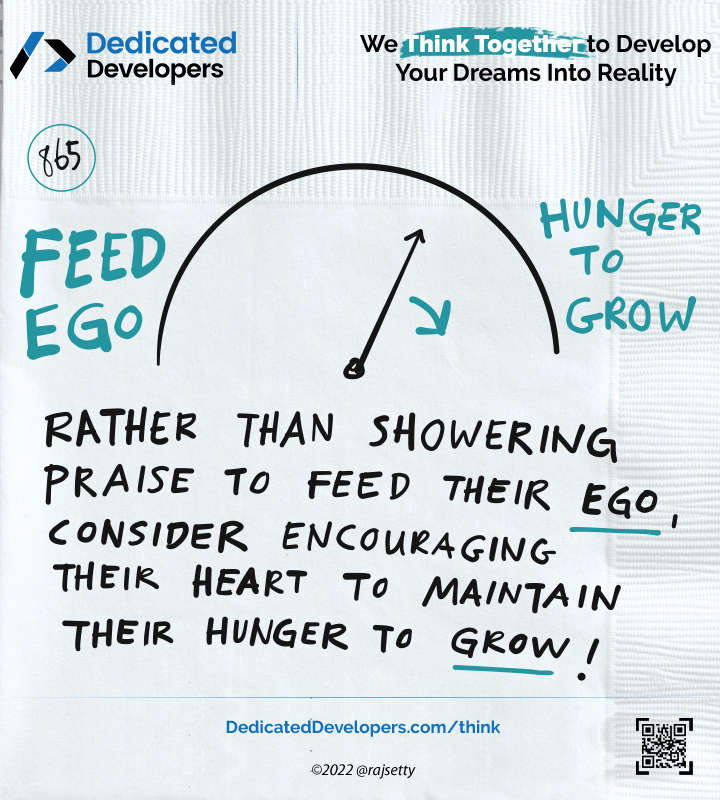 Dedicated
Developers
We Think Together to Develop
Your Dreams Into Reality
865
FEED
EGO
HUNGER
TO
GROW
RATHER THAN SHOWERING
PRAISE TO FEED THEIR EGO,
CONSIDER ENCOURAGING
THEIR HEART TO MAINTAIN
THEIR HUNGER TO GROW!
DedicatedDevelopers.com/think
©2022 @rajsetty